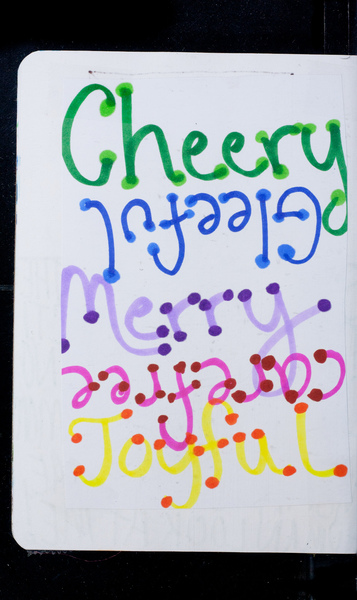 Cheery
Gleeful
Merry
carefree
Joyful